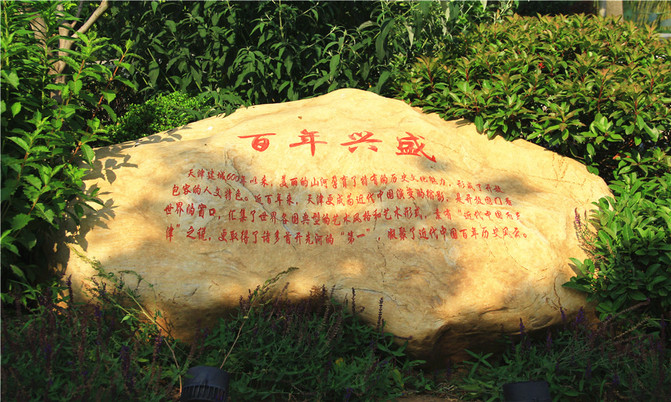 百年兴盛
天津建城600年以来，美丽的山河孕育了特有的历史文化魅力，形成了开放
包容的人文特色。近百年来，天津变成为近代中国演变的缩影，是开放国门看
世界的窗口，汇集了世界各国典型的艺术风格和艺术形式，素有“近代中国看天
津”之称，更取得了诸多首开先河的“第一”，凝聚了近代中国百年历史风云。